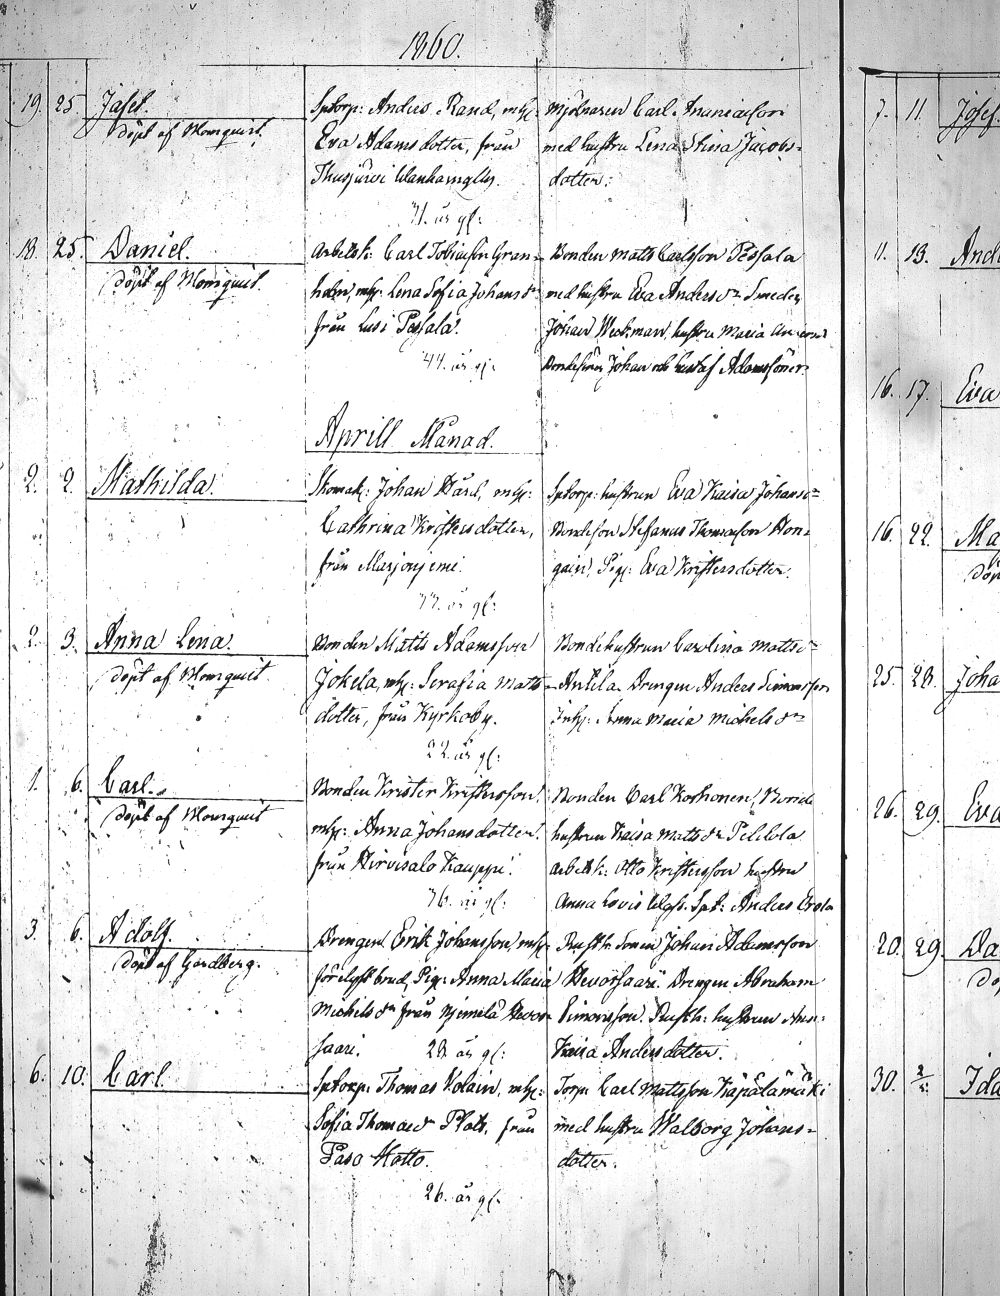 1860.
19. 25 Josef.
döpt af Blomquist.
Sptorp: Anders Rand, mhs:
Eva Adamsdotter, från
41. år gl:
Mjölnaren Carl Ananiasson
med hustru Lena Stina Jacobs-
dotter.
18. 25. Daniel.
döpt af Blomquist.
Arbetsk: Carl Tobiasson Gran-
holm, mhs: Lena Sofia Johansdr
från Lusi Pessala.
44. år gl:
Bonden Matts Carlsson Pessala
med hustru Eva Andersdr Smeden
Johan Weckman, hustru Maria
Bondesöner Johan och Gustaf Adamssöner.
Aprill Månad.
2. 2. Mathilda.
Skomak: Johan Hård, mhs:
Cathrina Kristersdotter,
från Marjoniemi.
år gl:
Sptorp: hustrun Eva Kaisa Johansdr
Bondeson Stefanus Thomasson Hon-
gain, Pig: Eva Kristersdotter.
2. 3. Anna Lena.
döpt af Blomquist
Bonden Matts Adamsson
Jokela, mhs: Serafia Matts-
dotter, från Kyrkoby.
22. år gl:
Bondehustrun Carolina Mattsdr
Anttila Drengen Anders Simonsson
Inhs: Anna Maria Michelsdr
1. 6. Carl.
döpt af Blomquist
Bonden Krister Kristersson,
mhs: Anna Johansdotter.
från Hirvisalo Kauppi.
år gl:
Bonden Carl Korhonen, Bonde
hustrun Kaisa Mattsdr Pelllola
Arbetsk: Otto Kristersson hustru
Anna Lovis Spt: Anders
3. 6. Adolf.
döpt af Gordberg.
Drengen Erik Johansson, mhs:
förelyst brud, Pig: Anna Maria
Michelsdr från Niemelä Hevos-
saari. 28 år gl:
Rusth: Sonen Johan Adamsson
Hevossaari. Drengen Abraham
Simonsson. Rusth: hustrun Ann:
Kaisa Andersdotter.
6. 10. Carl.
Sptorp: Thomas Rolain, mhs:
Sofia Thomasdr Plats, från
Paso Motto.
26. år gl:
Torp: Carl Mattsson Käpälämäki
med hustru Walborg Johans-
dotter.
7. 11. Josef.
11. 13. And
16. 17. Eva
16. 22. Ma
döp
25. 28. Joha
26. 29. Eva
20. 29. Da
dö
30. 2/5 Ida